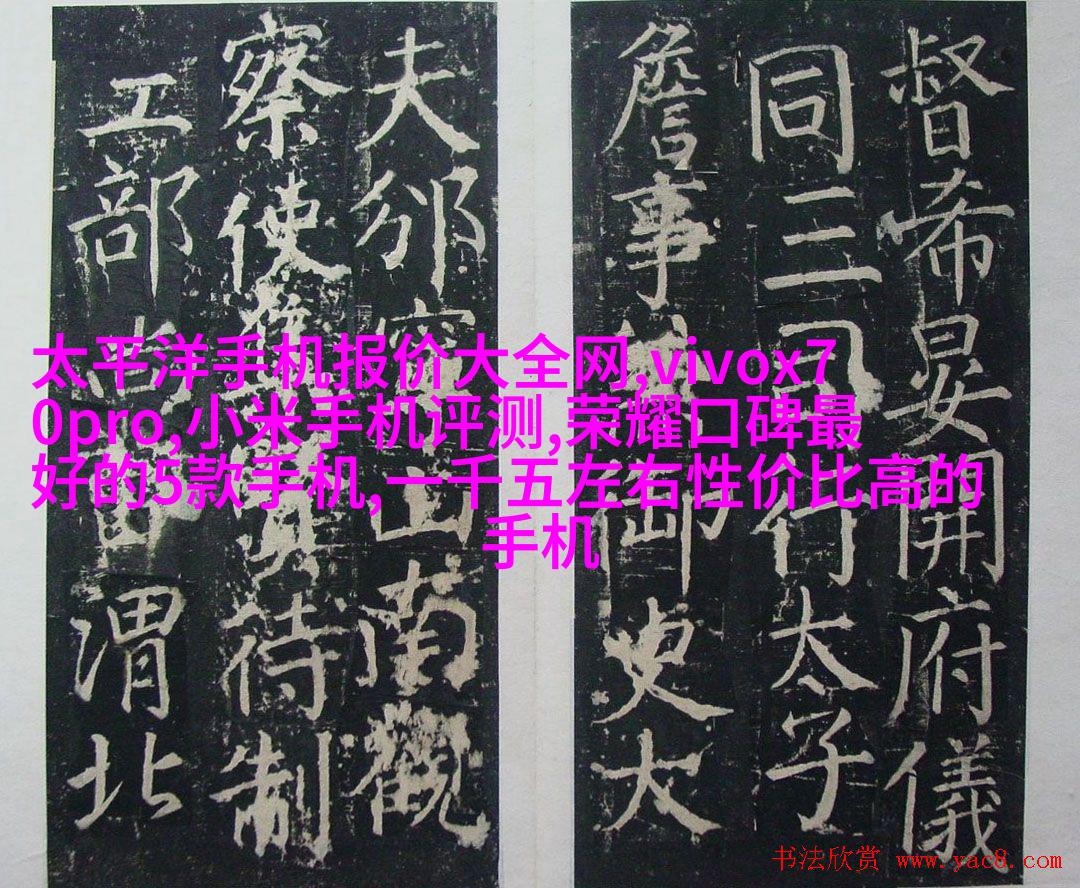 太平洋手机报价大全网,vivox7
0pro,小米手机评测,荣耀口碑最
好的5款手机,一千五左右性价比高的
手机
督希晏開府儀
同三司行太子
詹事御史大
夫邠山南觀
察使待制
工部尚書渭北
书法欣赏 www.yac8.com